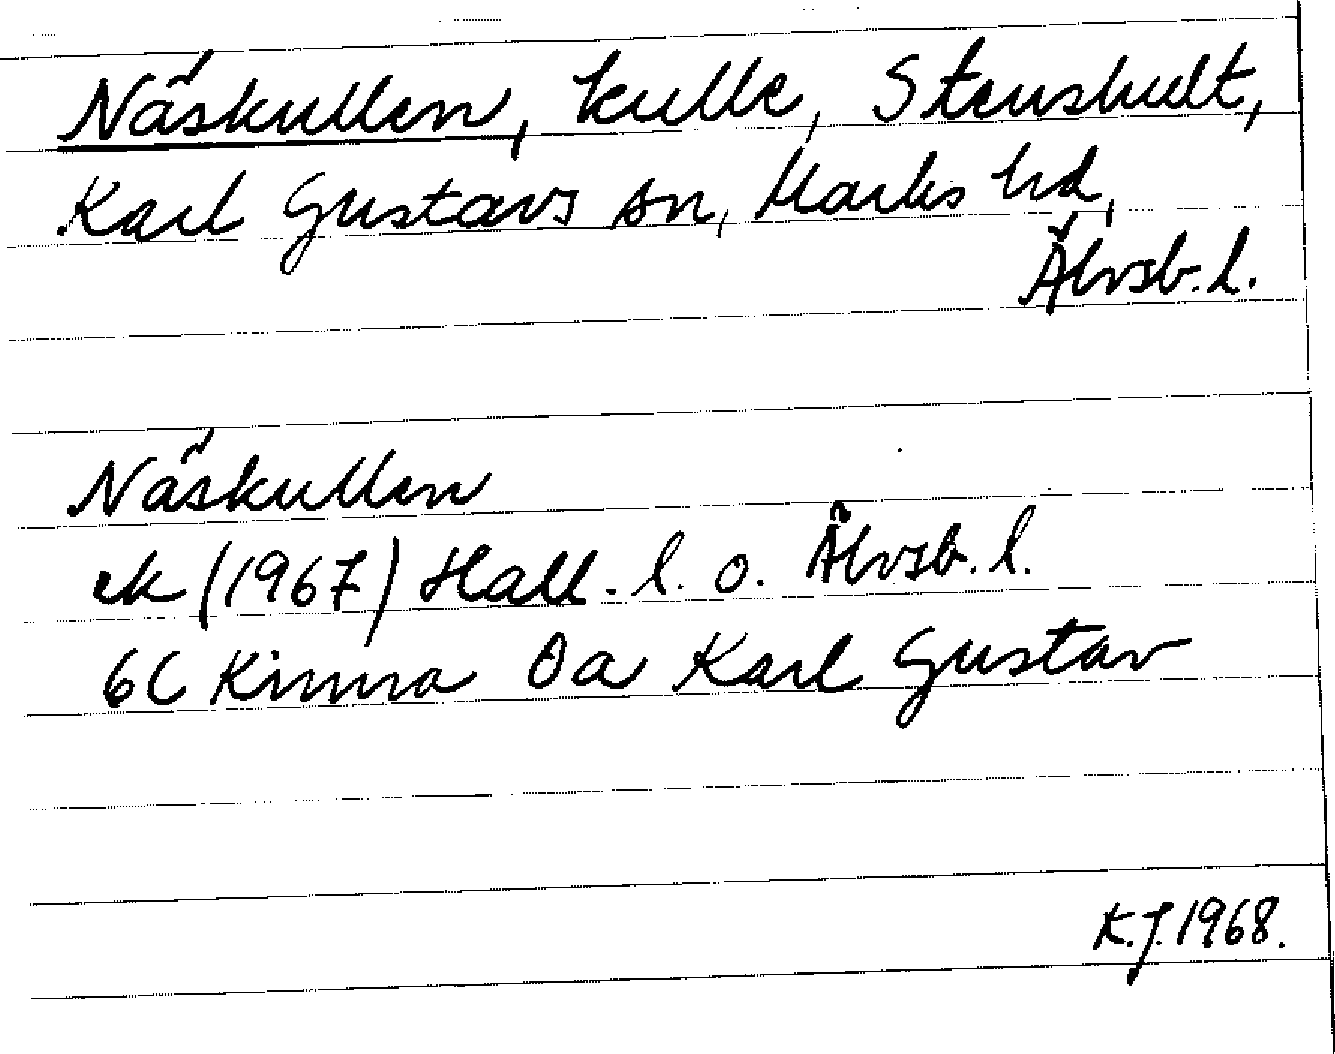 Näskullen, kulle, Stenshult,
Karl Gustavs sn, Marks hd,
Älvsb. l.
Näskullen
ek (1967) Hall. l. o. Älvsb. l.
6C Kinna 0a Karl Gustav
K.J. 1968.